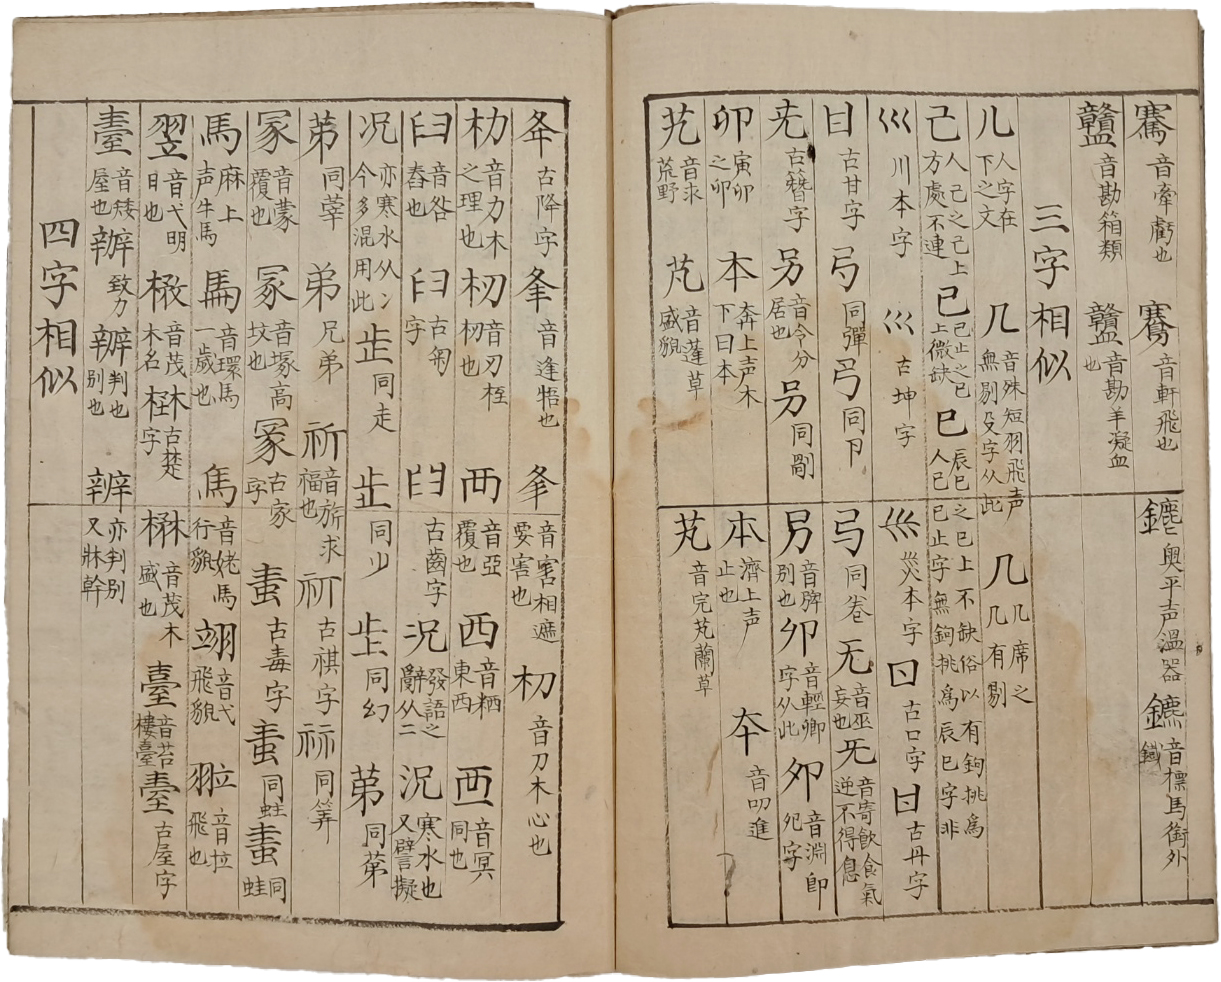 騫音牽虧也 騫音軒飛也 鑣奥平声溫器 鑣音標馬銜外鐵
贛音勘箱類 贛音勘羊凝血也
三字相似
几人字在下之文 几音殊短羽飛声無剔殳字从此 几几席之几有剔
己人己之己上方處不連 已已止之已上微缺 巳辰巳之巳上不缺俗以有鉤挑爲人巳已止字無鉤挑爲辰巳字非
巛川本字 巜古坤字 災本字 口古口字 古丹字
甘古甘字 弓同彈 弓同卩 弓同卷 无音巫妄也 旡音寄飲食氣逆不得息
先古簪字 叧音令分居也 另同剮 音牌別也 卯音輕卿字从此 夘音淵卽夗字
卯寅卯之卯 本奔上声木下曰本 本濟上声止也 夲音叨進
艽音求荒野 芃音蓬草盛貌 芄音完芄蘭草
夅古降字 夆音逢牾也 夆音害相遮要害也 朷音刀木心也
朸音力木之理也 杒音刃桎杒也 襾音亞覆也 西音栖東西 音冥同也
臼音咎舂也 古匊字 古齒字 况發語之辭从二 况寒水也又譬擬
况亦寒水从冫今多混用此 歨同走 同少 同幻 苐同第
苐同莘 弟兄弟 祈音旂求福也 古祺字 同筭
冡音蒙覆也 冢音塚高坟也 古家字 古毒字 同蛀 同蛙
馬麻上声牛馬 音環馬一歲也 馬音姥馬行貌 翊音弋飛貌 翋音拉飛也
翌音弋明日也 楙音茂木名 古楚字 楙音茂木盛也 臺音苔樓臺 古屋字
音矮屋也 辦致力 辨判也別也 辧亦判別又牀幹
四字相似